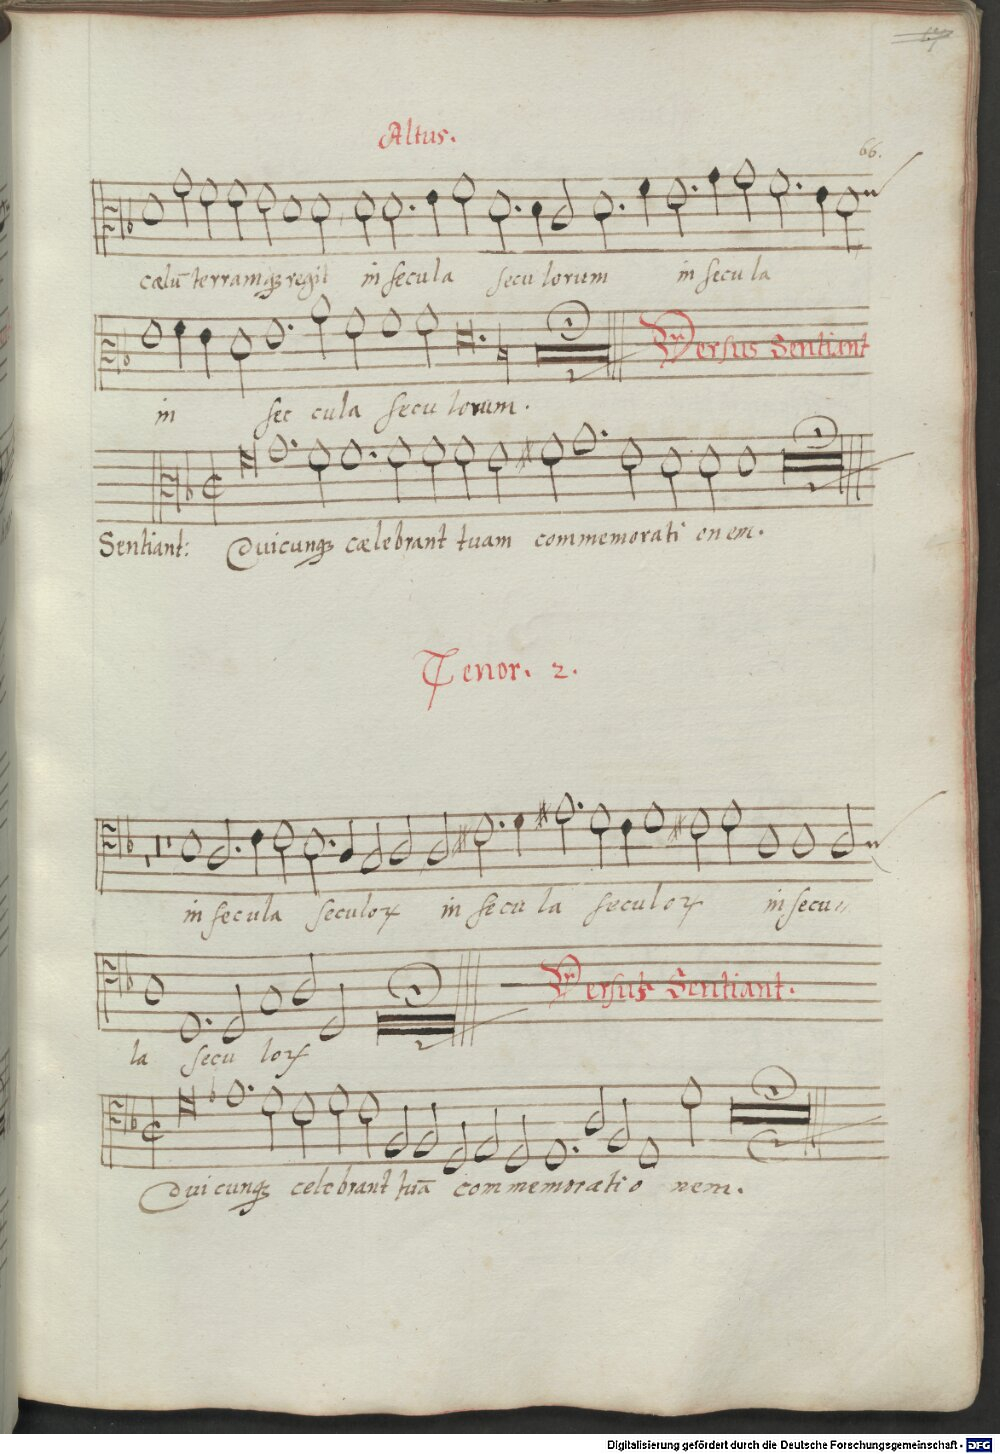 Altus.
66.
cælū terramqꝫ regit in secula seculorum in secula
in sec cula seculorum.
Versus Sentiant
Sentiant: Quicunqꝫ cælebrant tuam commemorationem.
Tenor. 2.
in secula seculoꝝ in secula seculoꝝ in secu
la seculoꝝ
Versus Sentiant.
Quicunqꝫ celebrant tuā commemoratio nem.
Digitalisierung gefördert durch die Deutsche Forschungsgemeinschaft - DFG